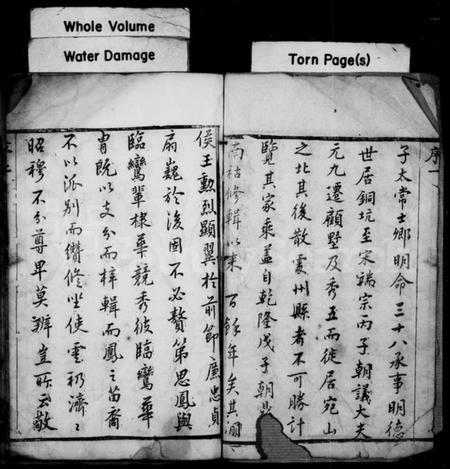 Whole Volume
Water Damage
Torn Page(s)
序一
子太常士卿明命三十八承事明德
世居銅坑至宋端宗丙子朝議大夫山
元九遷顧墅及秀五而徙居宛山
之北其後散處州縣者不可勝計
覽其家乘蓋自乾隆戊子朝
南枯修輯以來百餘年矣其淵
侯王勲烈顯翼於前節廉忠貞
扇巍於後固不必贅第思鳳與
臨鸞輩棣華競秀彼臨鸞華
胄既以支分而梓輯而鳳之苗裔
不以派別而纘修坐使雲礽濟濟
昭穆不分尊卑莫辨豈所致敬